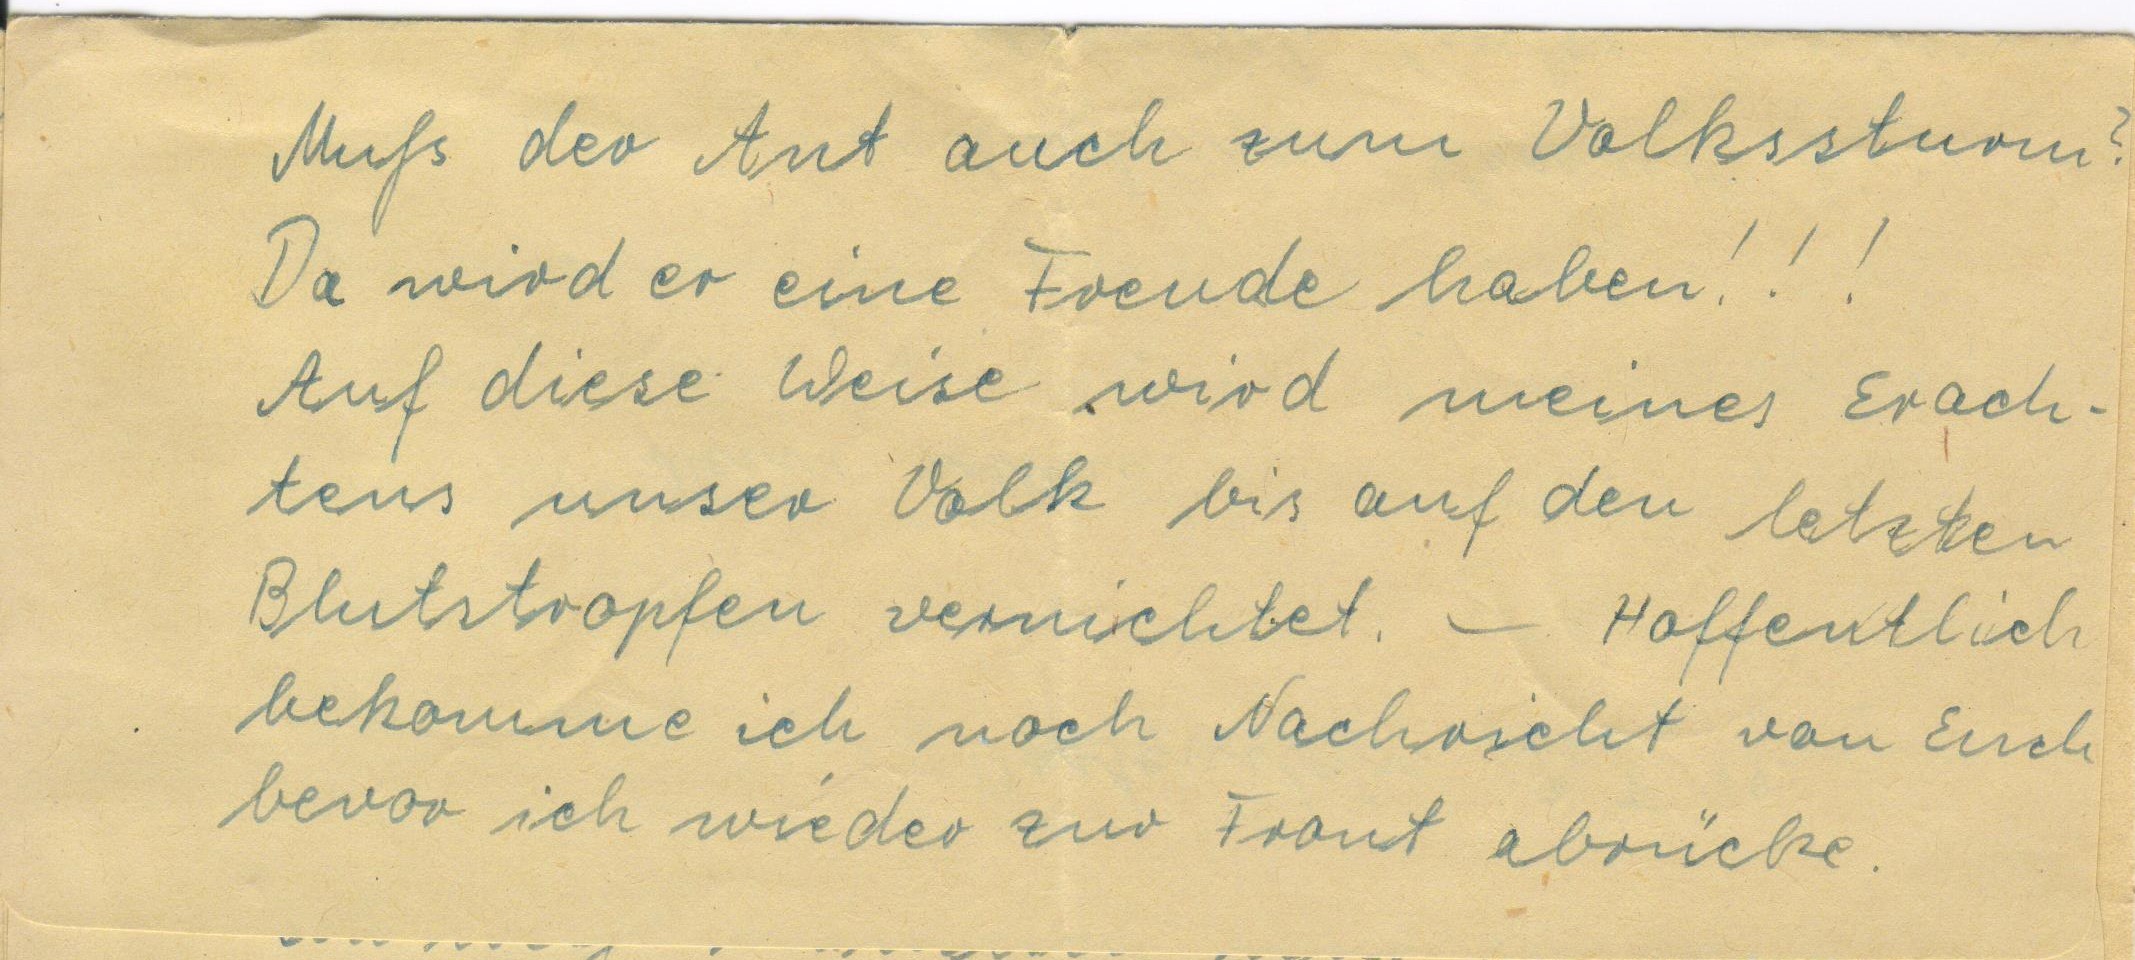 Muſs der Ant auch zum Volkssturm?
Da wird er eine Freude haben!!!
Auf diese Weise wird meines Erach-
tens unser Volk bis auf den letzten
Blutstropfen vernichtet. — Hoffentlich
bekomme ich noch Nachricht von Euch
bevor ich wieder zur Front abrücke.